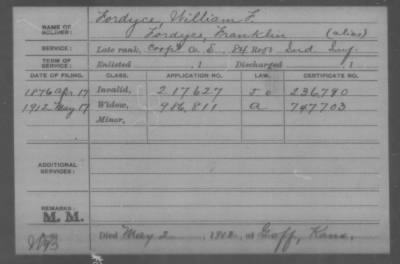 NAME OF SOLDIER: Fordyce, William F.
Fordyce, Franklin (alias)
SERVICE: Late rank, Corpl Co. E, 84 Regt Ind Inf.
TERM OF SERVICE: Enlisted , 1 Discharged , 1
DATE OF FILING. CLASS. APPLICATION NO. LAW. CERTIFICATE NO.
1876 Apr. 17 Invalid, 217627 236790
1912 May 17 Widow, 986,811 a 747703
Minor,
ADDITIONAL SERVICES:
REMARKS:
M. M.
Died May 2, 1912, at Goff, Kans.